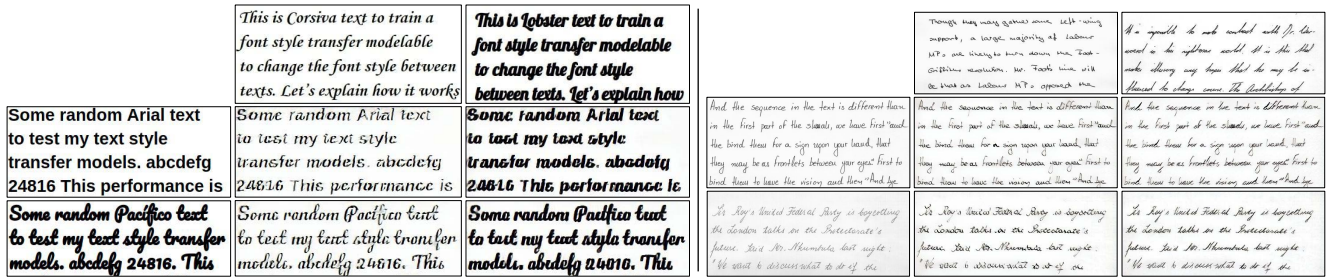 This is Corsiva text to train a
font style transfer modelable
to change the font style between
texts. Let's explain how it works
This is Lobster text to train a
font style transfer modelable
to change the font style
between texts. Let's explain how
Some random Arial text
to test my text style
transfer models. abcdefg
24816 This performance is
Some random Arial text
to test my text style
transfer models. abcdefg
24816 This performance is
Some random Arial text
to test my text style
transfer models. abcdefg
24816 This performance is
Some random Pacifico text
to test my text style transfer
models. abcdefg 24816. This
Some random Pacifico text
to test my text style transfer
models. abcdefg 24816. This
Some random Pacifico text
to test my text style transfer
models. abcdefg 24816. This
Though they may gather some Left-wing
support, a large majority of Labour
MPs are likely to turn down the Foot-
Griffiths resolution. Mr. Foot's line will
be that as Labour MPs opposed the
It is impossible to make contact with Dr.
in his nightmare world. It is this that
makes any hope that he may be in-
fluenced to change course. The Archbishop of
And the sequence in the text is different than
in the first part of the we have first "and
the bind them for a sign upon your hand, that
they may be as frontlets between your eyes" first to
bind them to have the vision and then "And be
And the sequence in the text is different than
in the first part of the we have first "and
the bind them for a sign upon your hand, that
they may be as frontlets between your eyes" first to
bind them to have the vision and then "And be
And the sequence in the text is different than
in the first part of the we have first "and
the bind them for a sign upon your hand, that
they may be as frontlets between your eyes" first to
bind them to have the vision and then "And be
Sir Roy's United Federal Party is boycotting
the London talks on the Protectorate's
future. Said Mr. Nkumbula last night:
"We want to discuss what to do if the
Sir Roy's United Federal Party is boycotting
the London talks on the Protectorate's
future. Said Mr. Nkumbula last night:
"We want to discuss what to do if the
Sir Roy's United Federal Party is boycotting
the London talks on the Protectorate's
future. Said Mr. Nkumbula last night:
"We want to discuss what to do if the